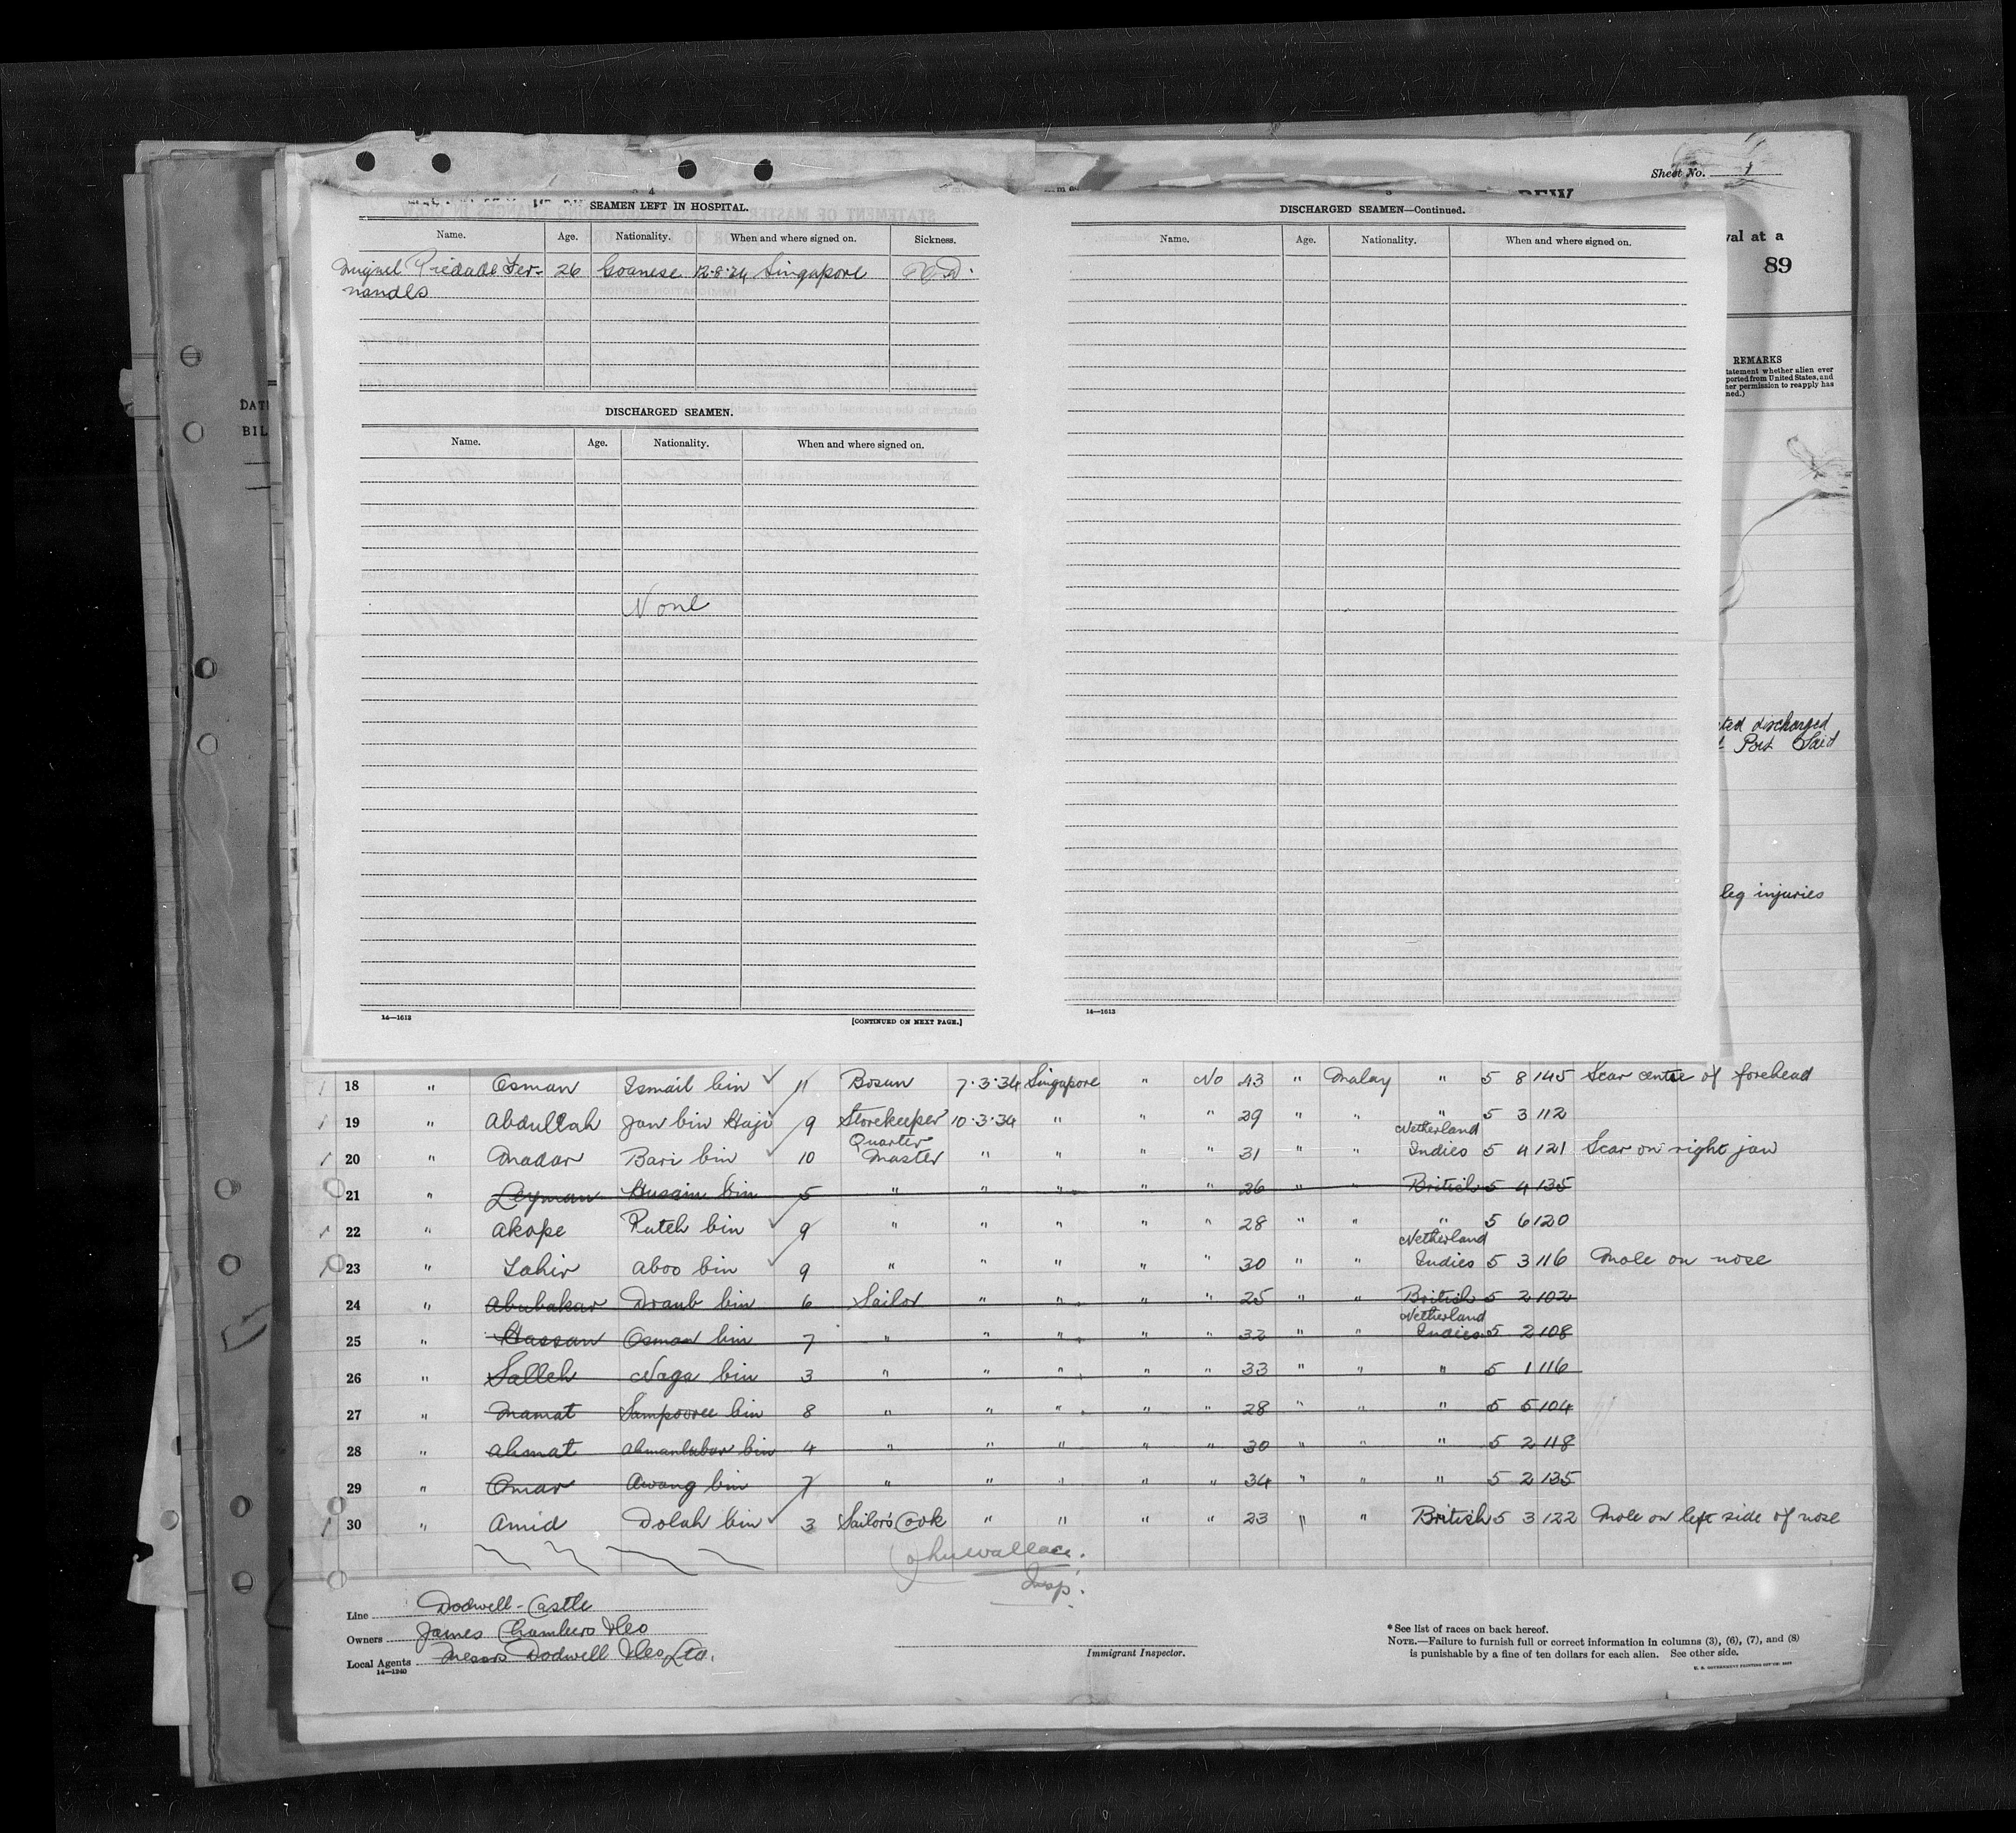 Sheet No. 1
val at a
89
REMARKS
tatement whether alien ever
ported from United States, and
her permission to reapply has
ned.)
DAT
BIL
SEAMEN LEFT IN HOSPITAL.
Name. Age. Nationality. When and where signed on. Sickness.
Miguel Piedade Fer- 26 Goanese 12·8·34 Singapore V.D.
nandes
DISCHARGED SEAMEN.
Name. Age. Nationality. When and where signed on.
None
14—1613 [CONTINUED ON NEXT PAGE.]
DISCHARGED SEAMEN—Continued.
Name. Age. Nationality. When and where signed on.
14—1613
ted discharged
Port Said
leg injuries
18 " Osman Ismail bin 11 Bosun 7·3·34 Singapore " No 43 " Malay " 5 8 145 Scar centre of forehead
19 " Abdullah Jan bin Haji 9 Storekeeper 10·3·34 " " " 29 " " " 5 3 112
20 " Madar Bari bin 10 Quarter Master " " " " 31 " " Netherland Indies 5 4 121 Scar on right jaw
21 " Leyman Husain bin 5 " " " " " 26 " " British 5 4 135
22 " Akope Puteh bin 9 " " " " " 28 " " " 5 6 120
23 " Tahir Aboo bin 9 " " " " " 30 " " Netherland Indies 5 3 116 Mole on nose
24 " Abubakar Draub bin 6 Sailor " " " " 25 " " British 5 2 102
25 " Hassan Osman bin 7 " " " " " 32 " " Netherland Indies 5 2 108
26 " Salleh Naga bin 3 " " " " " 33 " " " 5 1 116
27 " Mamat Sampooree bin 8 " " " " " 28 " " " 5 5 104
28 " Ahmat bin 4 " " " " " 30 " " " 5 2 118
29 " Omar Awang bin 7 " " " " " 34 " " " 5 2 135
30 " Amid Dolah bin 3 Sailor's Cook " " " " 23 " " British 5 3 122 Mole on left side of nose
Wallace.
Insp.
Line Dodwell-Castle
Owners James Chambers & Co
Local Agents Messrs Dodwell & Co, Ltd.
14—1240
Immigrant Inspector.
*See list of races on back hereof.
NOTE.—Failure to furnish full or correct information in columns (3), (6), (7), and (8)
is punishable by a fine of ten dollars for each alien. See other side.